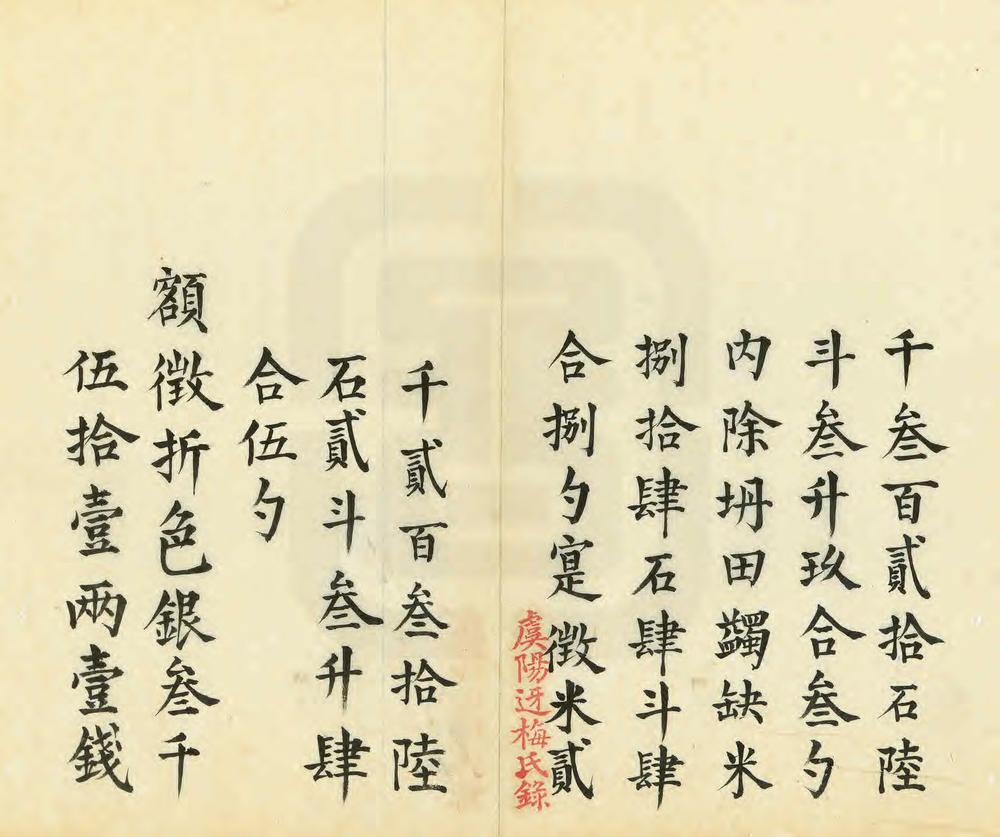 千叁百貳拾石陸
斗叁升玖合叁勺
内除坍田蠲缺米
捌拾肆石肆斗肆
合捌勺寔徴米貳
虞陽迓梅氏錄
千貳百叁拾陸
石貳斗叁升肆
合伍勺
額徴折色銀叁千
伍拾壹兩壹錢